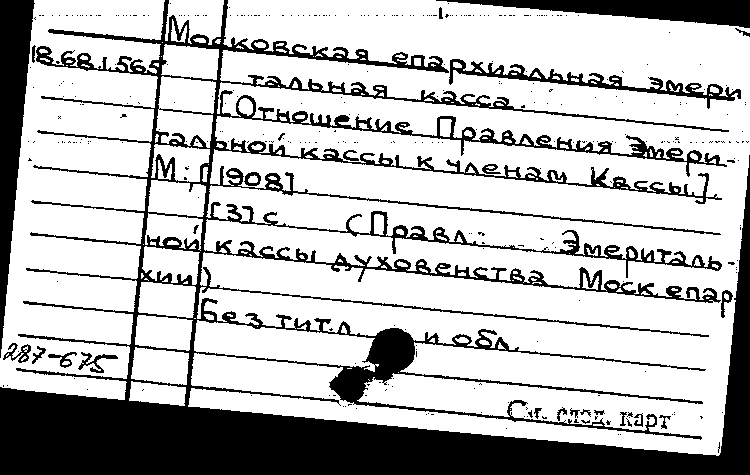 1.
Московская епархиальная эмери
18.68.1.565
тальная касса.
[Отношение Правления Эмери-
тальной кассы к членам Кассы].
М., [1908].
[3] с. (Правл. Эмериталь-
ной кассы духовенства Моск. епар
хии).
Без тит.л. и обл.
287-675
См. след. карт